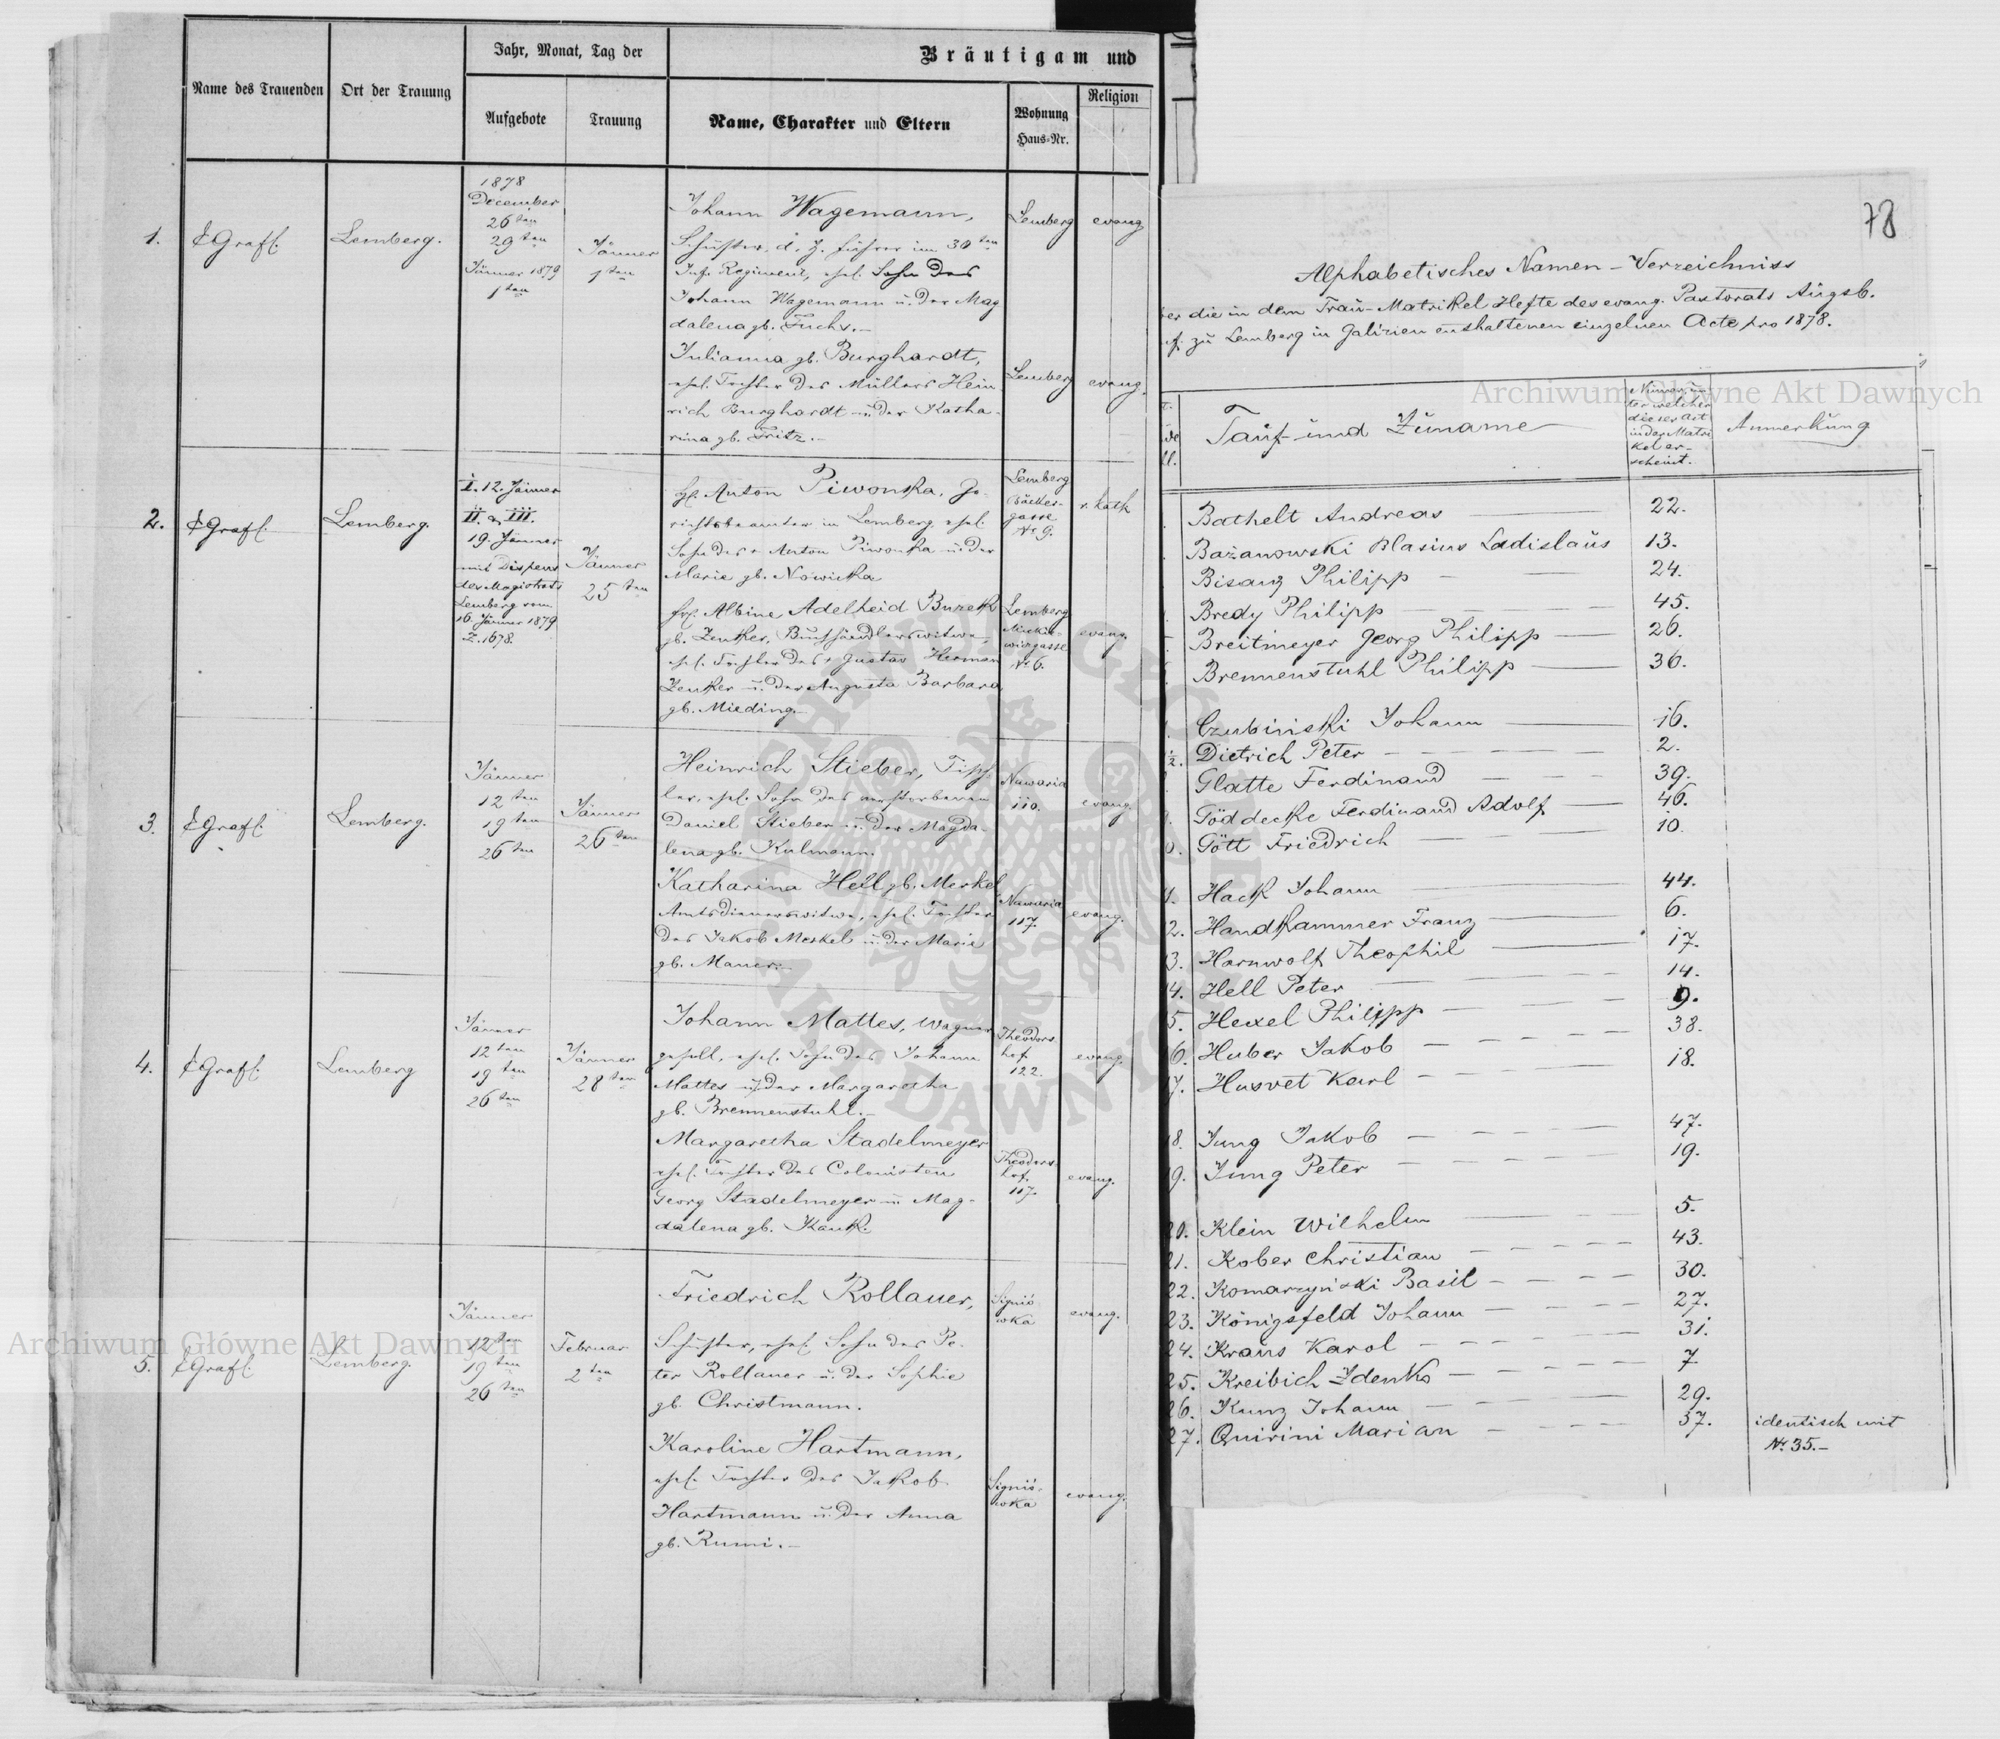 Bräutigam und
Jahr, Monat, Tag der
Name des Trauenden
Ort der Trauung
Aufgebote
Trauung
Name, Charakter und Eltern
Wohnung
Haus-Nr.
Religion
1.
Grafl.
Lemberg.
1878
December
26ten
29ten
Jänner 1879
1ten
Jänner
1ten
Johann Wagemann,
Schuster, d. Z. Führer im 30ten
Inf. Regiment, ehel. Sohn des
Johann Wagemann u. der Mag
dalena gb. Fuchs.-
Lemberg
evang
Julianna gb. Burghardt,
ehel. Tochter des Müllers Hein
rich Burghardt u. der Katha-
rina gb. Fritz.-
Lemberg
evang.
2.
Grafl.
Lemberg.
I. 12. Jänner
II. & III.
19. Jänner
mit Dispens
des Magistrats
Lemberg vom
16. Jänner 1879
Z. 1678.
Jänner
25ten
H. Anton Piwonka, Ge-
richtsbeamter in Lemberg, ehel.
Sohn des + Anton Piwonka u. der
Marie gb. Nowicka
Lemberg
Bäcker-
gasse
Nr 9.
r. kath
Fr. Albine Adelheid Burek
gb. Zenker, Buchhändlerswitwe,
ehel. Tochter des + Gustav Herman
Zenker u. der Augusta Barbara
gb. Mieding.-
Lemberg
Mickie-
wiczgasse
Nr 6.
evang.
3.
Grafl.
Lemberg.
Jänner
12ten
19ten
26ten
Jänner
26ten
Heinrich Stieber, Tisch-
ler, ehel. Sohn des verstorbenen
Daniel Stieber u. der Magda-
lena gb. Kulmann.
Nawaria
110.
evang.
Katharina Hell gb. Merkel
Amtsdienerswitwe, ehel. Tochter
des Jakob Merkel u. der Marie
gb. Mauer.-
Nawaria
117.
evang.
4.
Grafl.
Lemberg
Jänner
12ten
19ten
26ten
Jänner
28ten
Johann Mattes, Wagner
gesell, ehel. Sohn des Johann
Mattes u. der Margaretha
gb. Brennenstuhl.-
Theodors-
hof
122.
evang.
Margaretha Stadelmeyer
ehel. Tochter des Colonisten
Georg Stadelmeyer u. Mag-
dalena gb. Kauk.
Theodors-
hof.
117.
evang.
5.
Grafl.
Lemberg.
Jänner
12ten
19ten
26ten
Februar
2ten
Friedrich Rollauer,
Schuster, ehel. Sohn des Pe-
ter Rollauer u. der Sophie
gb. Christmann.
Signió
wka
evang.
Karoline Hartmann,
ehel. Tochter des Jakob
Hartmann u. der Anna
gb. Rumi.-
Signió-
wka
evang.
78
Alphabetisches Namen-Verzeichniss
ber die in dem Trau-Matrikel Hefte des evang. Pastorats Augsb.
nf. zu Lemberg in Galizien enthaltenen einzelnen Acte pro 1878.
Tauf- und Zuname
Numer, un-
ter welcher
dieser Act
in der Matri
kel er-
scheint.
Anmerkung
Bathelt Andreas 22.
Bażanowski Blasius Ladislaus 13.
Bisanz Philipp 24.
Bredy Philipp 45.
Breitmeyer Georg Philipp 26.
Brennenstuhl Philipp 36.
Czubiński Johann 16.
Dietrich Peter 2.
Glatte Ferdinand 39.
Göddecke Ferdinand Adolf 46.
0. Gött Friedrich 10.
1. Hack Johann 44.
2. Handkammer Franz 6.
3. Harnwolf Theophil 17.
4. Hell Peter 14.
5. Hexel Philipp 9.
6. Huber Jakob 38.
7. Husvet Karl 18.
18. Jung Jakob 47.
9. Jung Peter 19.
20. Klein Wilhelm 5.
21. Kober Christian 43.
22. Komarzyński Basil 30.
23. Königsfeld Johann 27.
24. Kraus Karol 31.
25. Kreibich Zdenko 7
26. Kunz Johann 29.
27. Quirini Marian 37. identisch mit
Nr. 35.-
Archiwum Główne Akt Dawnych
Archiwum Główne Akt Dawnych